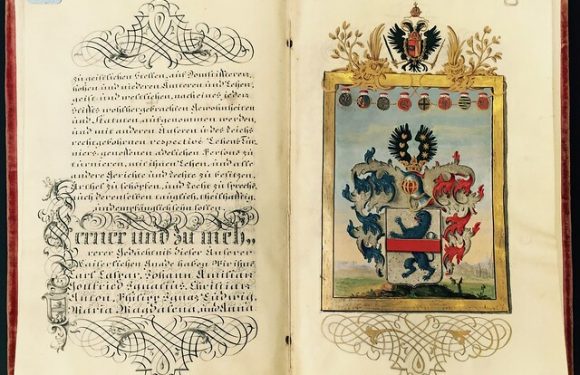 zu geistlichen Stellen, auf Domstifteren,
hohen und niederen Aemteren und Lehen,
geist- und weltlichen, nach eines jeden
Stiftes wohlhergebrachten Gewohnheiten
und Statuten aufgenommen werden,
und mit anderen Unseren u: des Reichs
rechtgebohrnen respective Lehens-Tur-
niers-genossenen adelichen Persons zu
turnieren, mit ihnen Lehen, und alle
andere Gerichte und Rechte zu besitzen,
Urthel zu schöpfen, und Recht zu sprechen,
auch derenselben tauglich, theilhaftig,
und empfänglich seyn sollen.
Ferner und zu meh-
rerer Gedächtnis dieser Unserer
Kaiserlichen Gnade haben Wir ihm,
Carl Caspar, Johann
Gottfried Ignatius, Christian
Anton, Philipp Ignaz Ludwig,
Maria Magdalena, und Anna